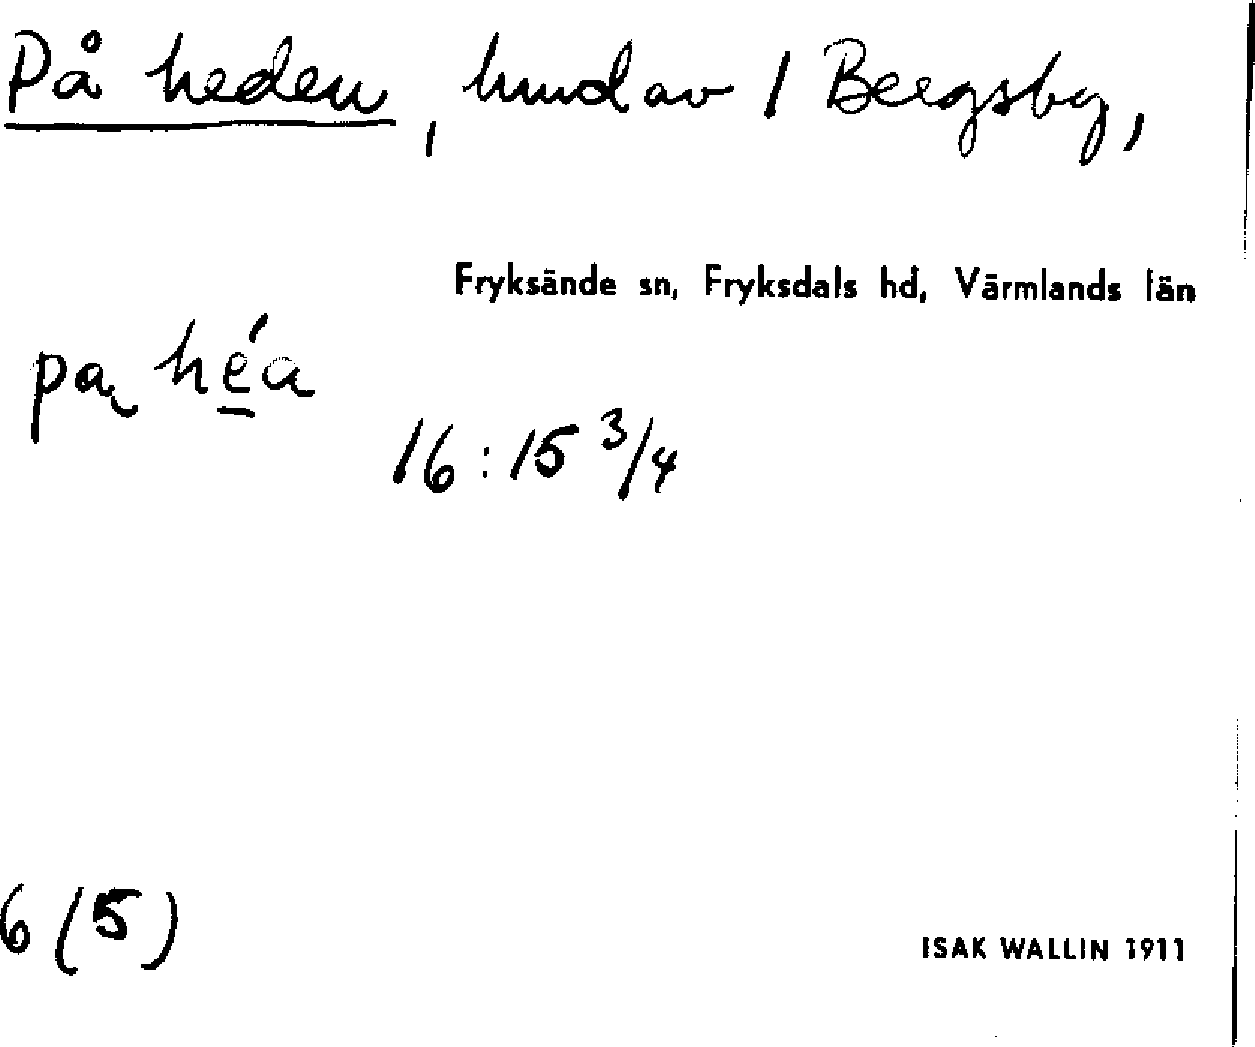 På heden, hmd av 1 Bergsby,
Fryksände sn, Fryksdals hd, Värmlands län
pa héa
16:15 3/4
6 (5)
ISAK WALLIN 1911